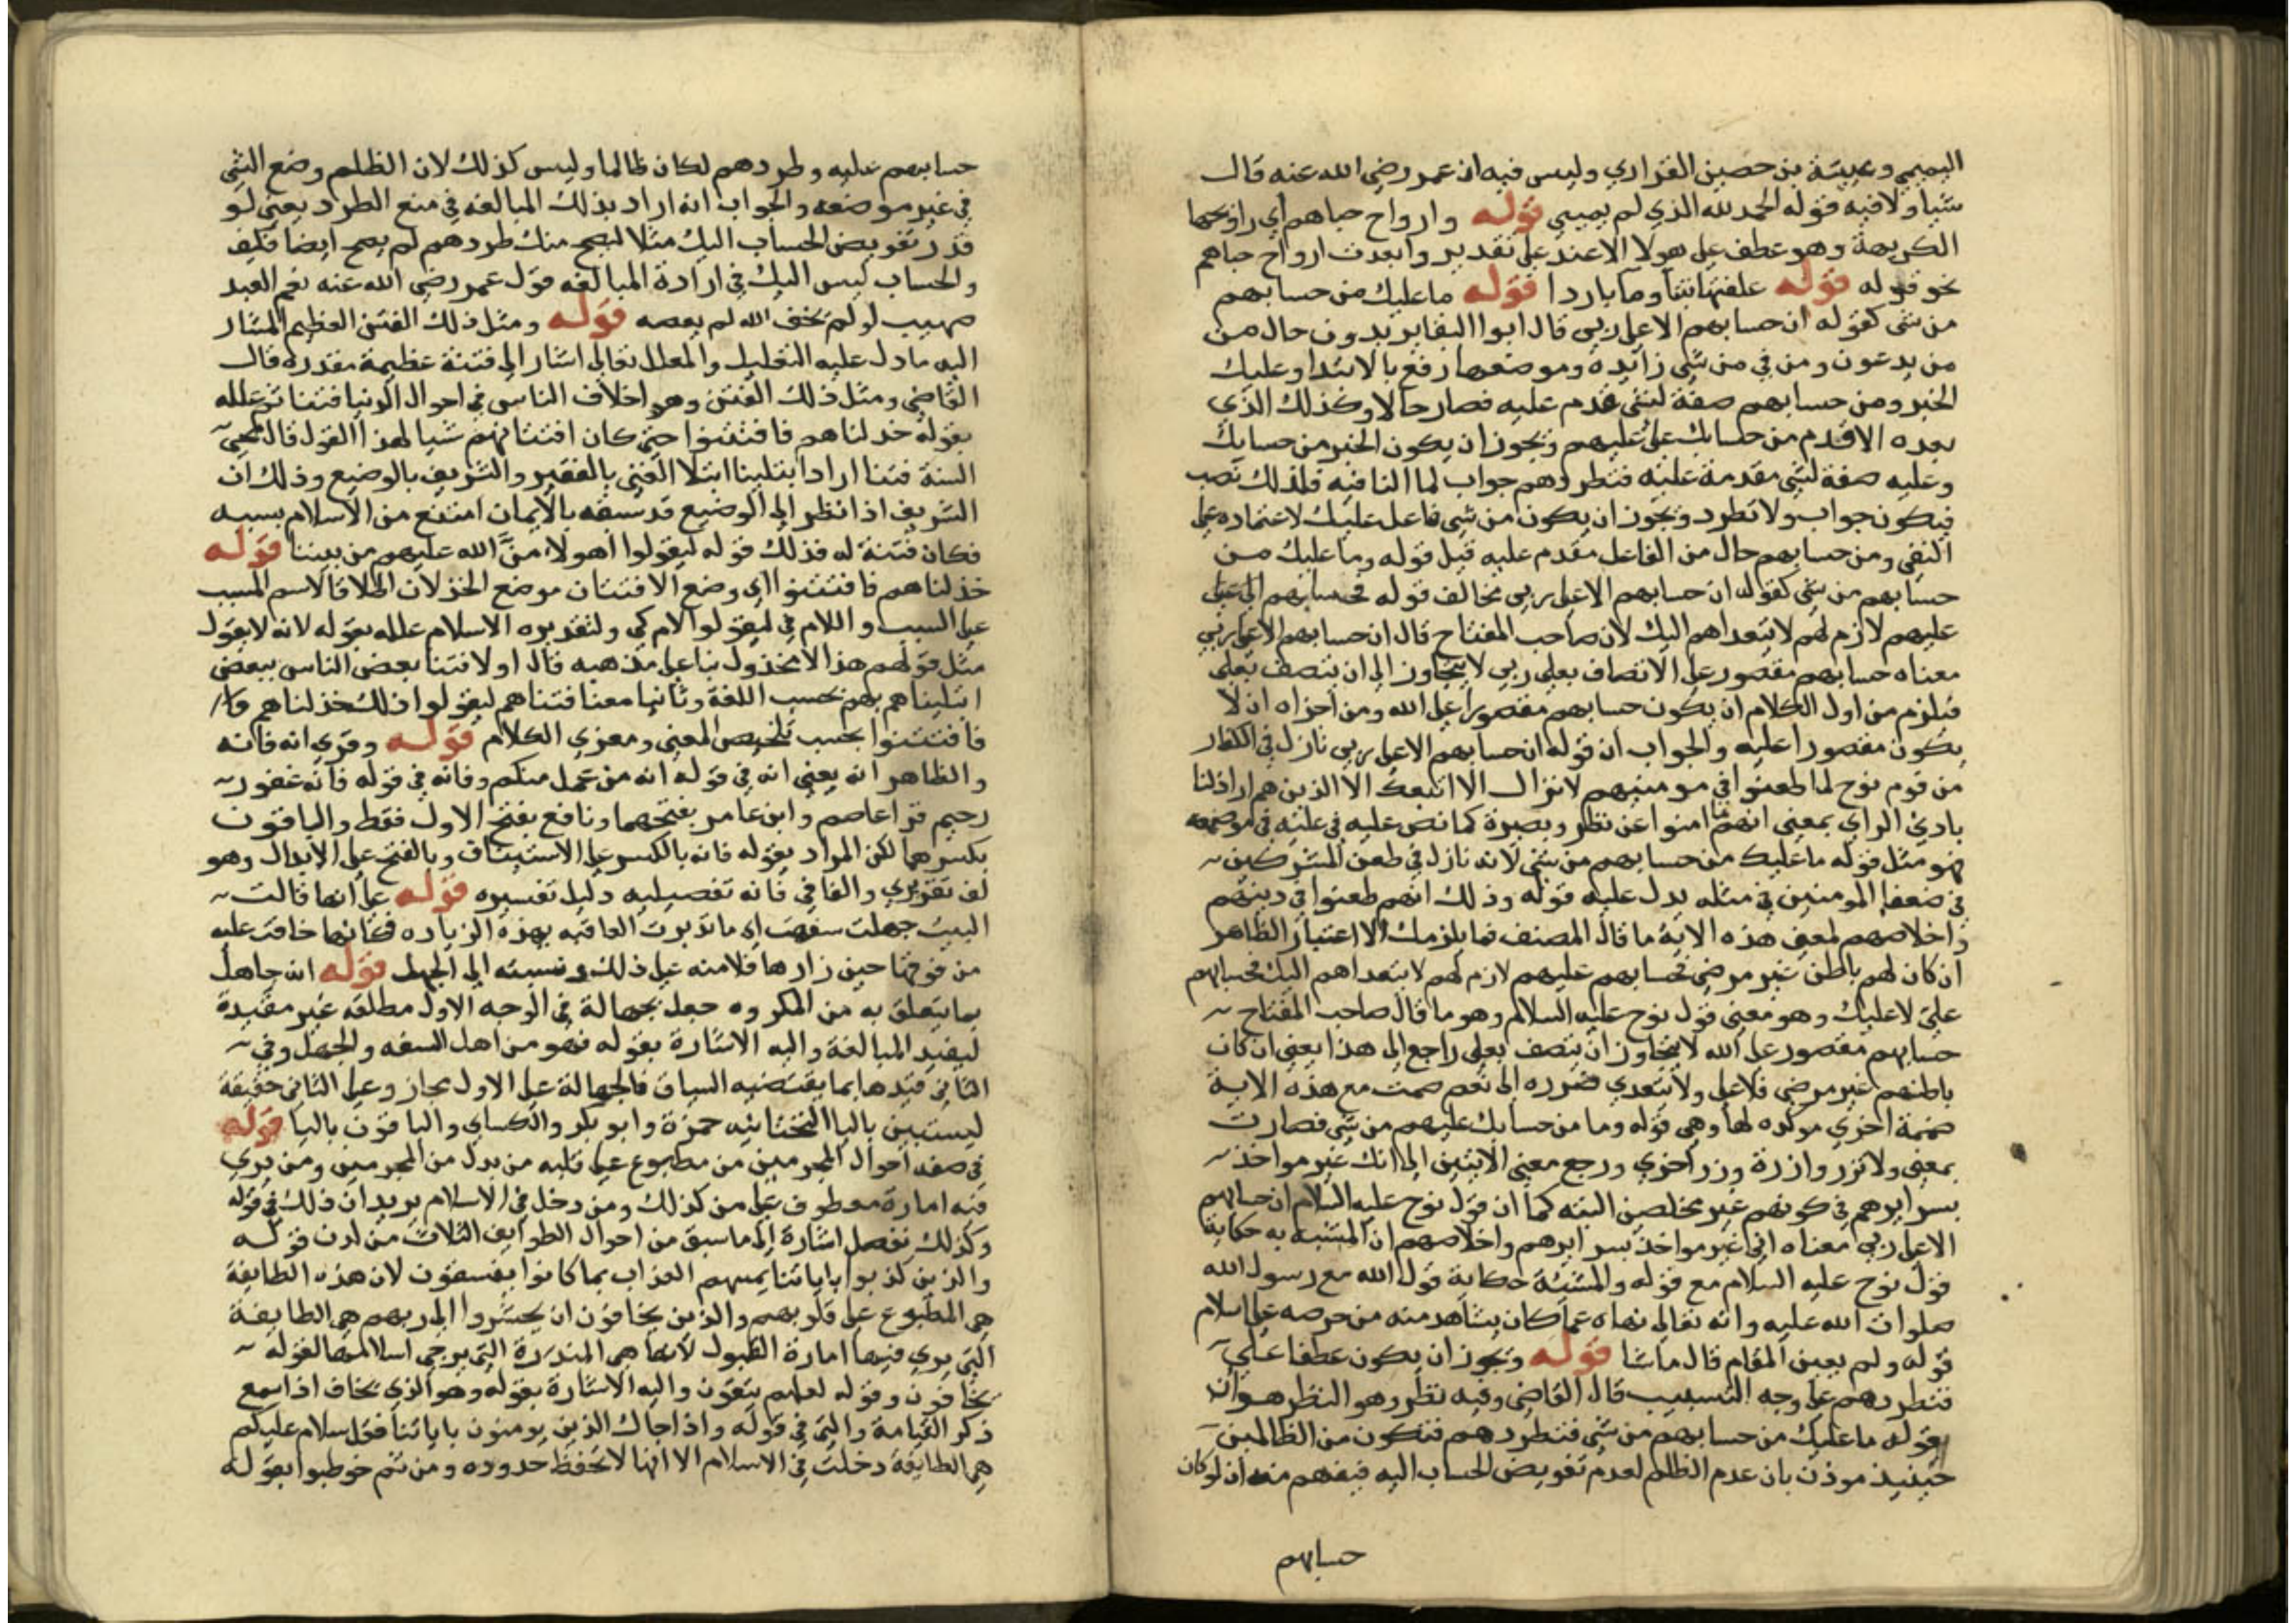 التميمي وعيينة بن حصين الفزاري وليس فيه ان عمر رضي الله عنه قال
شيا ولا فيه قوله الحمد لله الذي لم يميتني قوله وارواح جبابهم اي روايحها
الكريهة وهو عطف على هولا الاعبد على تقدير وابعدت ارواح جبابهم
نحو قوله قوله علفتها تبنا وما باردا قوله ما عليك من حسابهم
من شي كقوله ان حسابهم الا على ربي قال ابوا البقا يريدون حال من
من يدعون ومن في من شي زايده وموضعها رفع بالابتدا وعليك
الخبر ومن حسابهم صفة لشي قدم عليه فصار حالا وكذلك الذي
بعده الا قدم من حسابك على عليهم ويجوز ان يكون الخبر من حسابك
وعليه صفة لشي مقدمة عليه فتطردهم جواب لما النافيه فلذلك نصب
فيكون جواب ولا تطرد ويجوز ان يكون من شي فاعل عليك لاعتماده على
النفي ومن حسابهم حال من الفاعل مقدم عليه قبل قوله وما عليك من
حسابهم من شي كقوله ان حسابهم الا على ربي يخالف قوله فحسابهم الى على
عليهم لازم لهم لا يتعداهم اليك لان صاحب المفتاح قال ان حسابهم الا على ربي
معناه حسابهم مقصور على الاتصاف بعلى ربي لا يتجاوز الى ان يتصف بعلى
فيلزم من اول الكلام ان يكون حسابهم مقصورا على الله ومن اخراه ان لا
يكون مقصورا عليه والجواب ان قوله ان حسابهم الا على ربي نازل في الكفار
من قوم نوح لما طعنوا في مومنيهم لا نزال الا اتبعك الا الذين هم اراذلنا
بادي الراي بمعنى انهم ما امنوا عن نظر وبصيرة كما نص عليه في عليه في موضعه
فهو مثل قوله ما عليك من حسابهم من شي لانه نازل في طعن المشركين
في ضعفا المومنين في مثله يدل عليه قوله وذلك انهم طعنوا في دينهم
واخلاصهم لمعنى هذه الاية ما قال المصنف فما يلزمك الا اعتبار الظاهر
ان كان لهم باطن غير مرضي فحسابهم عليهم لازم لهم لا يتعداهم اليك فحسابهم
علي لا عليك وهو معنى قول نوح عليه السلام وهو ما قال صاحب المفتاح
حسابهم مقصور على الله لا يتجاوز ان يتصف بعلى راجع الى هذا يعني ان كان
باطنهم غير مرضي فلا علي ولا يتعدي ضرره الى نعم ضمت مع هذه الاية
ضميمة اخري موكده لها وهي قوله وما من حسابك عليهم من شي فصارت
بمعنى ولا تزر وازرة وزر اخري ورجع معنى الايتين الى انك غير مواخذ
بسرايرهم في كونهم غير مخلصين البته كما ان قول نوح عليه السلام ان حسابهم
الا على ربي معناه اني غير مواخذ بسرايرهم واخلاصهم ان المشبه به حكاية
قول نوح عليه السلام مع قوله والمشبة حكاية قول الله مع رسول الله
صلوات الله عليه وانه تعالى نهاه عما كان يشاهد منه من حرصه على اسلام
قوله ولم يعين المقام قال ماشا قوله ويجوز ان يكون عطفا على
فتطردهم على وجه التسبيب قال القاضي وفيه نظر وهو النظر هو ان
بقوله ما عليك من حسابهم من شي فتطردهم فتكون من الظالمين
حينيذ موذن بان عدم الظلم لعدم تفويض الحساب اليه فيفهم منه ان لو كان
حسابهم
حسابهم عليه وطردهم لكان ظالما وليس كذلك لان الظلم وضع الشي
في غير موضعه والجواب انه اراد بذلك المبالغه في منع الطرد يعني لو
قدر تفويض الحساب اليك مثلا ليصح منك طردهم لم يصح ايضا فكيف
والحساب ليس اليك في ارادة المبالغه قول عمر رضي الله عنه نعم العبد
صهيب لو لم يخف الله لم يعصه قوله ومثل ذلك الفتن العظيم المشار
اليه ما دل عليه التعليل والمعلل تعالى اشار الى فتنة عظيمة مقدره قال
القاضي ومثل ذلك الفتن وهو اختلاف الناس في احوال الدنيا فتنا ثم علله
بقوله خذلناهم فافتتنوا حتى كان افتتانهم سببا لهذا القول قال محيي
السنة فتنا اراد ابتلينا ابتلا الغني بالفقير والشريف بالوضيع وذلك ان
الشريف اذا نظر الى الوضيع قد سبقه بالايمان امتنع من الاسلام بسببه
فكان فتنة له فذلك قوله ليقولوا اهولا من الله عليهم من بيننا قوله
خذلناهم فافتتنوا اي وضع الافتتان موضع الخذلان اطلاقا لاسم المسبب
على السبب واللام في ليقولوا لام كي ولتقديره الاسلام علله بقوله لانه لا يقول
مثل قولهم هذا الا مخذول بنا على مذهبه قال اولا فتنا بعض الناس ببعض
ابتليناهم بهم بحسب اللغة وثانيا معنا فتناهم ليقولوا ذلك خذلناهم
فافتتنوا بحسب تلخيص المعنى ومغزي الكلام قوله وقري انه فانه
والظاهر انه يعني انه في قوله انه من عمل منكم وفانه في قوله فانه غفور
رحيم قرا عاصم وابن عامر بفتحهما ونافع بفتح الاول فقط والباقون
بكسرهما لكن المراد بقوله فانه بالكسر على الاستيناف وبالفتح على الابدال وهو
لف تقديري والفا في فانه تفصيليه دليل تفسيره قوله على انها قالت
البيت جهلت سفهت اي ما تدبرت العاقبه بهذه الزياره فكانها خافت عليه
من قومها حين زارها فلامته على ذلك ونسبته الى الجهل قوله انه جاهل
بما يتعلق به من المكروه جعل بجهالة في الوجه الاول مطلقه غير مقيدة
ليفيد المبالغة واليه الاشارة بقوله فهو من اهل السفه والجهل وفي
الثاني قيدها بما يقتضيه السياق فالجهالة على الاول مجاز وعلى الثاني حقيقة
ليستبين باليا التحتانيه حمزة وابو بكر والكساي والباقون بالتا قوله
في صفه احوال المجرمين من مطبوع على قلبه من بدل من المجرمين ومن يري
فيه امارة معطوف على من كذلك ومن دخل في الاسلام يريد ان ذلك في قوله
وكذلك نفصل اشارة الى ما سبق من احوال الطوايف الثلاث من لدن قوله
والذين كذبوا باياتنا يمسهم العذاب بما كانوا يفسقون لان هذه الطايفة
هي المطبوع على قلوبهم والذين يخافون ان يحشروا الى ربهم هي الطايفة
التي يري فيها امارة القبول لانها هي المنذرة التي يرجي اسلامها لقوله
يخافون وقوله لعلهم يتقون واليه الاشارة بقوله وهو الذي يخاف اذا سمع
ذكر القيامة والتي في قوله واذا جاك الذين يومنون باياتنا فقل سلام عليكم
هي الطايفة دخلت في الاسلام الا انها لا تحفظ حدوده ومن ثم خوطبوا بقوله